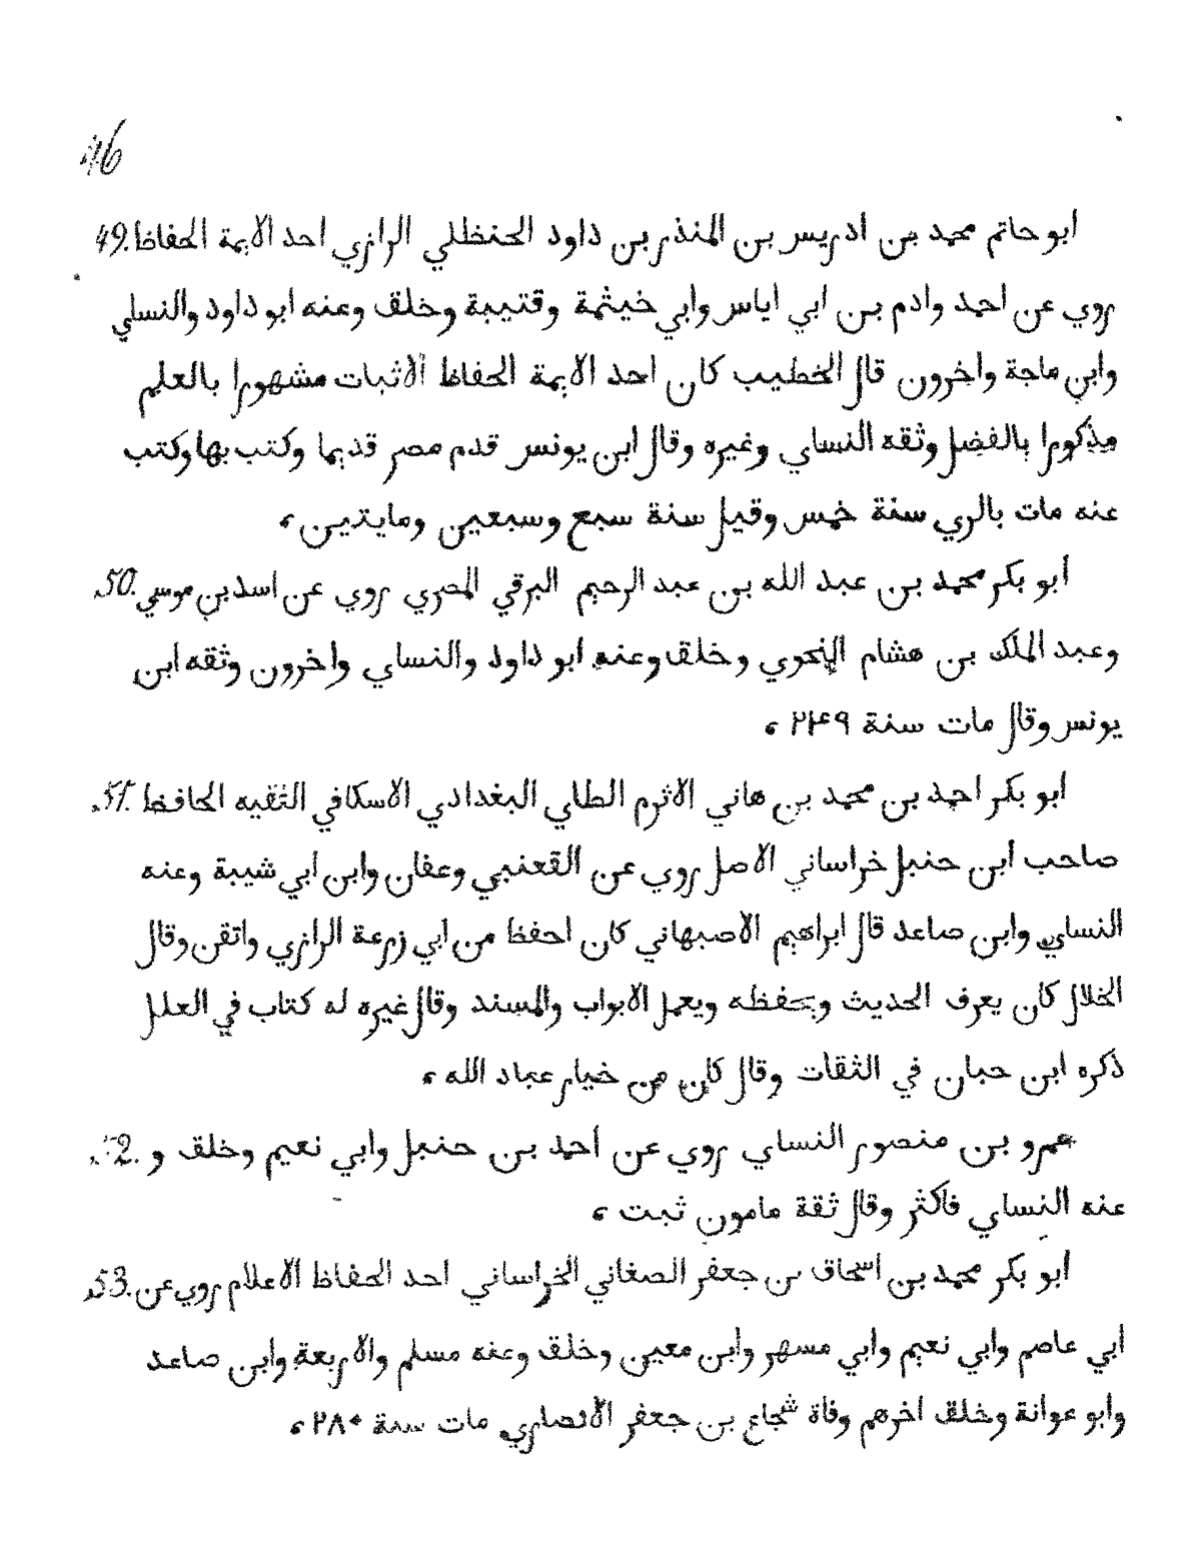 46
49. ابو حاتم محمد بن ادريس بن المنذر بن داود الحنظلي الرازي احد الايمة الحفاظ
روي عن احمد وادم بن ابي اياس وابي خيثمة وقتيبة وخلق وعنه ابو داود والنسلي
وابن ماجة واخرون قال الخطيب كان احد الايمة الحفاظ الاثبات مشهورا بالعلم
مذكورا بالفضل وثقه النساي وغيره وقال ابن يونس قدم مصر قديما وكتب بها وكتب
عنه مات بالري سنة خمس وقيل سنة سبع وسبعين ومايتين ،
50. ابو بكر محمد بن عبد الله بن عبد الرحيم البرقي المصري روي عن اسد بن موسي
وعبد الملك بن هشام النحوي وخلق وعنه ابو داود والنساي واخرون وثقه ابن
يونس وقال مات سنة ٢٤٩ ،
51. ابو بكر احمد بن محمد بن هاني الاثرم الطاي البغدادي الاسكافي الثقيه الحافظ
صاحب ابن حنبل خراساني الاصل روي عن القعنبي وعفان وابن ابي شيبة وعنه
النساي وابن صاعد قال ابراهيم الاصبهاني كان احفظ من ابي زرعة الرازي واتقن وقال
الخلال كان يعرف الحديث ويحفظه ويعمل الابواب والمسند وقال غيره له كتاب في العلل
ذكره ابن حبان في الثقات وقال كان من خيار عباد الله ،
52. عمرو بن منصور النساي روي عن احمد بن حنبل وابي نعيم وخلق و
عنه النساي فاكثر وقال ثقة مامون ثبت ،
53. ابو بكر محمد بن اسحاق بن جعفر الصغاني الخراساني احد الحفاظ الاعلام روي عن
ابي عاصم وابي نعيم وابي مسهر وابن معين وخلق وعنه مسلم والاربعة وابن صاعد
وابو عوانة وخلق اخرهم وفاة شجاع بن جعفر الانصاري مات سنة ٢٨٠ ،